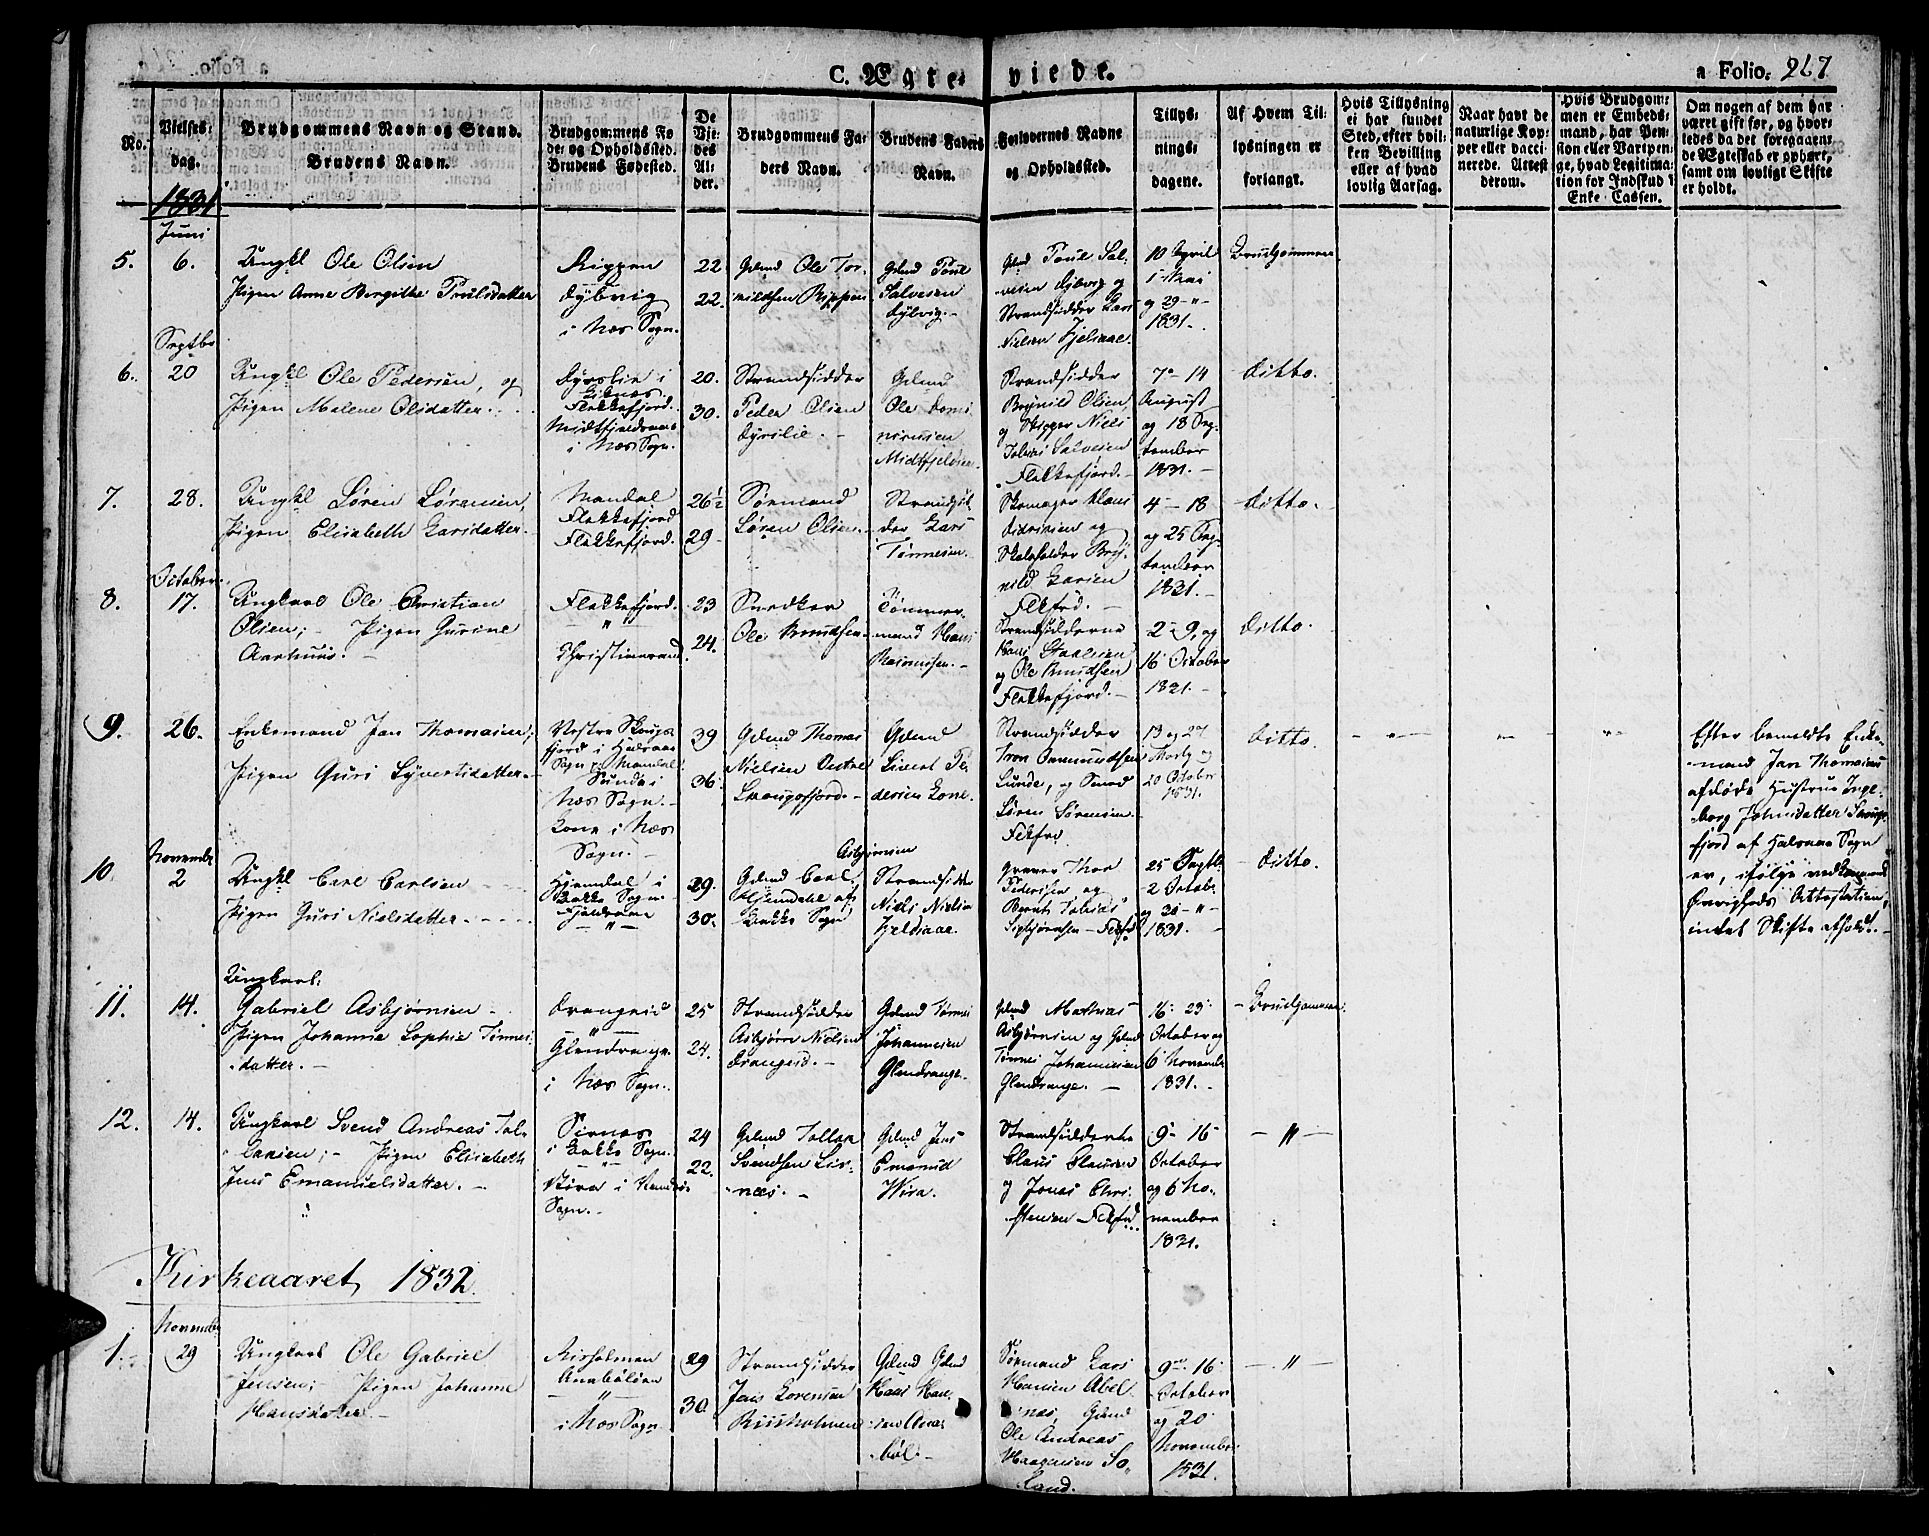 C. Ægteviede.
a Folio. 267
No.
Vielses-dag.
Brudgommens Navn og Stand.
Brudens Navn.
Brudgommens Fø-
de- og Opholdssted.
Brudens Fødested.
De
Vie-
des
Al-
der.
Brudgommens Fa-
ders Navn.
Brudens Faders
Navn.
Forlovernes Navne
og Opholdssted.
Tillys-
nings-
dagene.
Af Hvem Til-
lysningen er
forlangt.
Hvis Tillysning
ei har fundet
Sted, efter hvil-
ken Bevilling
eller af hvad
lovlig Aarsag.
Naar havt de
naturlige Kop-
per eller vacci-
nerede. Attest
derom.
Hvis Brudgom-
men er Embeds-
mand, har Pen-
sion eller Vartpen-
ge, hvad Legitima-
tion for Indskud i
Enke-Cassen.
Om nogen af dem har
været gift før, og hvor-
ledes da det foregaaen-
de Ægteskab er ophørt,
samt om lovligt Skifte
er holdt.
1831
Juni
5. 6.
Ungkl Ole Olsen
Pigen Anne Bergithe Poulsdatter
Rippen
Dybvig
i Næs Sogn.
22
22.
Gdmd Ole Tor-
mildsen Rippen
Gdmd Poul
Salvesen
Dybvig.-
Gdmd Poul Sal-
vesen Dybvig og
Strandsidder Lars
Nielsen Fjelsaae.
10 April
1 Mai
og 29 - " -
1831.
Brudgommen
Septbr
6. 20
Ungkl Ole Pedersen, og
Pigen Malene Olsdatter.
Dyrslie i
Flekkefjord.
i Næs Sogn.
20.
30.
Strandsidder
Peder Olsen
Dyrslie. -
Gdmd
Ole
Strandsidder
Olsen
og Skipper Niels
Tobias Salvesen
Flekkefjord. -
7 - 14
August
og 18 Sep-
tember
1831. -
ditto.
7. 28.
Ungkl Søren Sørensen,
Pigen Elisabeth Larsdatter -
Mandal
Flekkefjord
Flekkefjord.
26½
29 -
Sømand
Søren Olsen. -
Strandsid-
der Lars
Tønnesen. -
Skomager Klaus
Didriksen og
nild Larsen
Flkfrd. -
4 - 18
og 25 Sep-
tember
1831. -
ditto.
October
8. 17.
Ungkarl Ole Christian
Olsen; - Pigen Gurine
Aarhuus. -
Flekkefjord.
- " -
Christiansand.
23
24.
Snedker
Ole Knudsen -
Tømmer-
mand Hans
Rasmussen. -
Strandsidderne
Hans
og Ole Knudsen
Flekkefjord. -
2 - 9, og
16 October
1831. -
ditto.
9. 26.
Enkemand Jan Thomasen;
Pigen Guri Syvertsdatter. -
i Halsaae
Sogn v. Mandal
Sunde i
Næs Sogn. -
Lone i Næs
Sogn. -
39
36.
Gdmd Thomas
Nielsen Vestre
Skougsfjord. -
Gdmd
Sivert Pe-
dersen Lone.
Strandsidder
Tron Ommundsen
Lunde, og Smed
Søren Sørensen
Flkfrd
13 og 27
20 October
1831.
ditto.
- " -
- " -
- " -
Efter bemeldte Enke-
mand Jan Thomasens
afdøde Hustrue Inge-
borg Johnsdatter Skougs-
fjord af Halsaae Sogn
er, ifølge vedkommend
Øvrigheds Attestation,
intet Skifte afholdt. -
Novembr
10. 2
Ungkl Carl Carlsen
Pigen Guri Nielsdatter
Hjemdal i
Bakke Sogn
Fjeldsaae
- " -
29.
30.
Asbjørnsen
Gdmd Carl
Hjemdahl af
Bakke Sogn
Strandsidder
Niels Nielsen
Fjeldsaae.
Pedersen og
Bernt Tobias
Sigbjørnsen - Flkfrd
25 Septb.
2 Octob.
og 30 - " -
1831. -
- ditto.
11. 14.
Ungkarl:
Gabriel Asbjørnsen -
Pigen Johanna Sophie Tønnes-
datter. -
Drangeid
- " -
Glendrange
i Næs Sogn.
25
24.
Strandsidder
Asbjørn Nielsen
Drangeid. -
Gdmd Tønnes
Johannesen
Glendrange.
Gdmd Mathias
Asbjørnsen og Gdmd
Tønnes Johannesen
Glendrange. -
16 23
October og
6 Novembr
1831. -
- Brudgommen.
12. 14.
Ungkarl Svend Andreas Tol-
laksen; - Pigen Elisabeth
Jens Emanuelsdatter. -
Sirnæs
i Bakke Sogn.
Sogn. -
24
22.
Gdmd Tollak
Svendsen Sir-
næs. -
Gdmd Jens
Emanuel
Wira.
Strandsidderne
Claus Clausen
og Jonas Chri-
stensen Flkfrd
9 - 16
October
og 6 No-
vember
1831.
- " -
Kirkeaaret 1832.
November
1. 29
Ungkarl Ole Gabriel
Jensen; - Pigen Johanne
Hansdatter. -
Risholmen
Anabøløen
- " -
i Næs Sogn
29
30.
Strandsidder
Jens Lorensen
Risholmen
Gdmd
Hans Han-
sen Ana-
bøl. -
Sømand Lars
Hansen Abel-
næs, Gdmd
Ole Andreas
Haagensen So-
land.
9 - 16
October
og 20
November
1831.
- " -